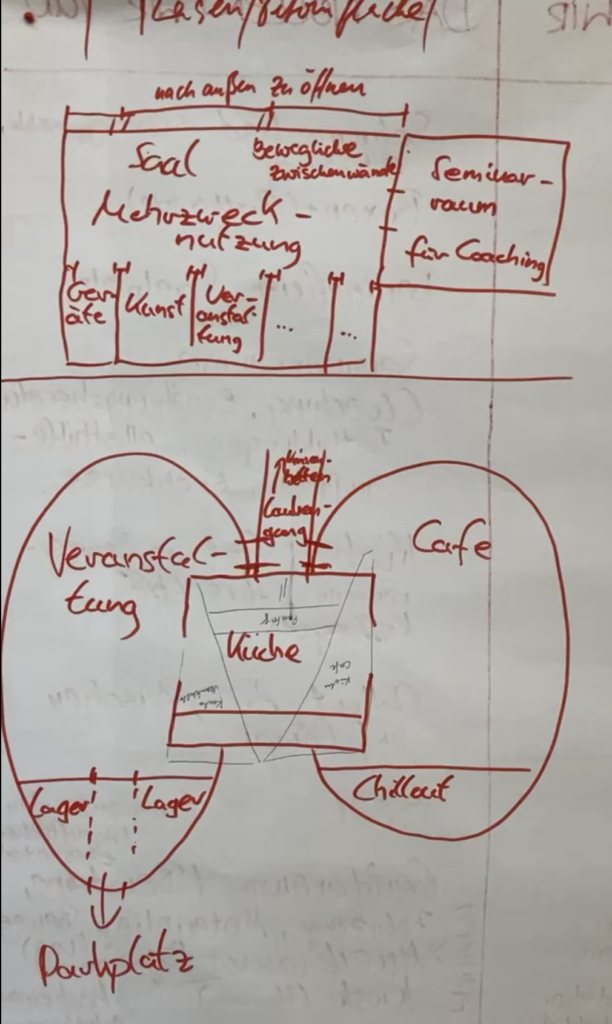 nach außen zu öffnen
Saal
Bewegliche
Zwischenwände
Mehrzweck-
nutzung
Seminar-
raum
für Coaching
Ger-
äte
Kunst
Ver-
anstal-
tung
...
...
Lauben-
gang
Veranstal-
tung
Cafe
Küche
Lager
Lager
Chillout
Parkplatz